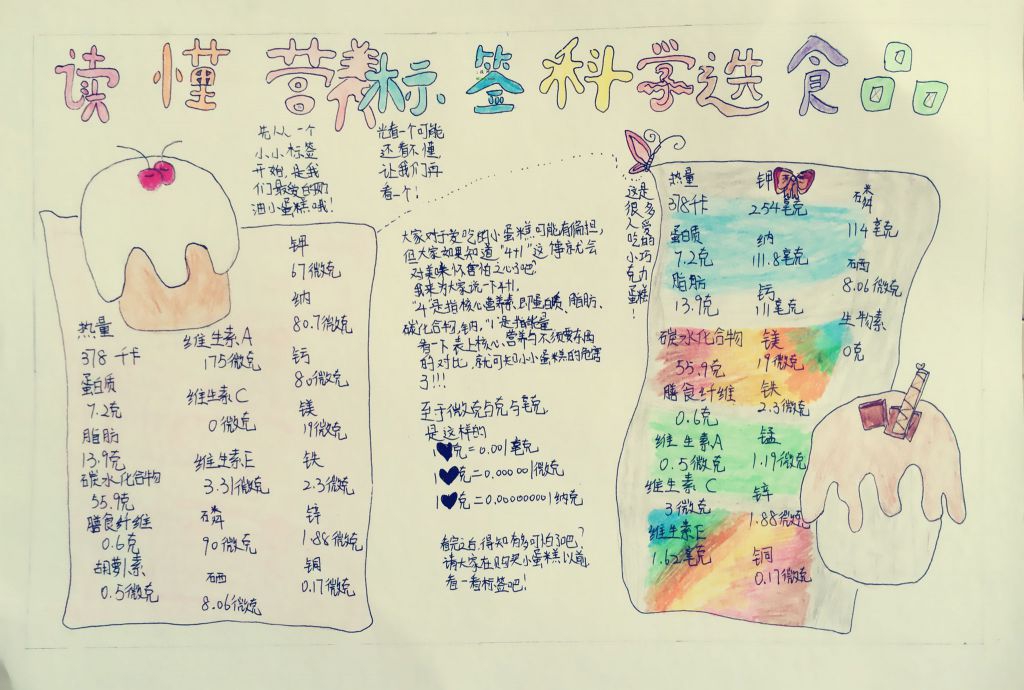 读懂营养标签科学选食品
先从一个
小小标签
开始,是我
们最爱的奶
油小蛋糕哦!
光看一个可能
还看不懂,
让我们再
看一个!
热量
378千卡
蛋白质
7.2克
脂肪
13.9克
碳水化合物
55.9克
膳食纤维
0.6克
胡萝卜素
0.5微克
维生素A
175微克
维生素C
0微克
维生素E
3.31微克
磷
90微克
硒
8.06微克
钾
67微克
纳
80.7微克
钙
80微克
镁
19微克
铁
2.3微克
锌
1.88微克
铜
0.17微克
大家对于爱吃的小蛋糕可能有偏担,
但大家如果知道"4+1"这件事就会
对美味怀害怕之心了吧?
我来为大家说一下4+1,
"4"是指核心营养素,即蛋白质、脂肪、
碳化合物,钠,"1"是指能量
看一下表上核心营养与不须要东西
的对比,就可知小小蛋糕的危害
了!!!
至于微克与克与毫克
是这样的
1克=0.001毫克
1克=0.000001微克
1克=0.000000001纳克
看完之后,得知有多可怕了吧?
请大家在购买小蛋糕以前,
看一看标签吧!
这是很多人爱吃的小巧克力蛋糕!
热量
378千卡
蛋白质
7.2克
脂肪
13.9克
碳水化合物
55.9克
膳食纤维
0.6克
维生素A
0.5微克
维生素C
3微克
维生素E
1.62毫克
钾
254毫克
纳
111.8毫克
钙
111毫克
镁
19微克
铁
2.3微克
锰
1.19微克
锌
1.88微克
铜
0.17微克
磷
114毫克
硒
8.06微克
生物素
0克